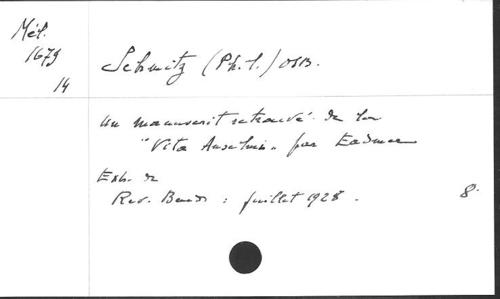 Mél.
1679
14
Schmitz (Ph. S.) OSB.
Un manuscrit retrouvé de la
"Vita Anselmi" par Eadmer
Extr. de
Rev. Bened : juillet 1928.
8°